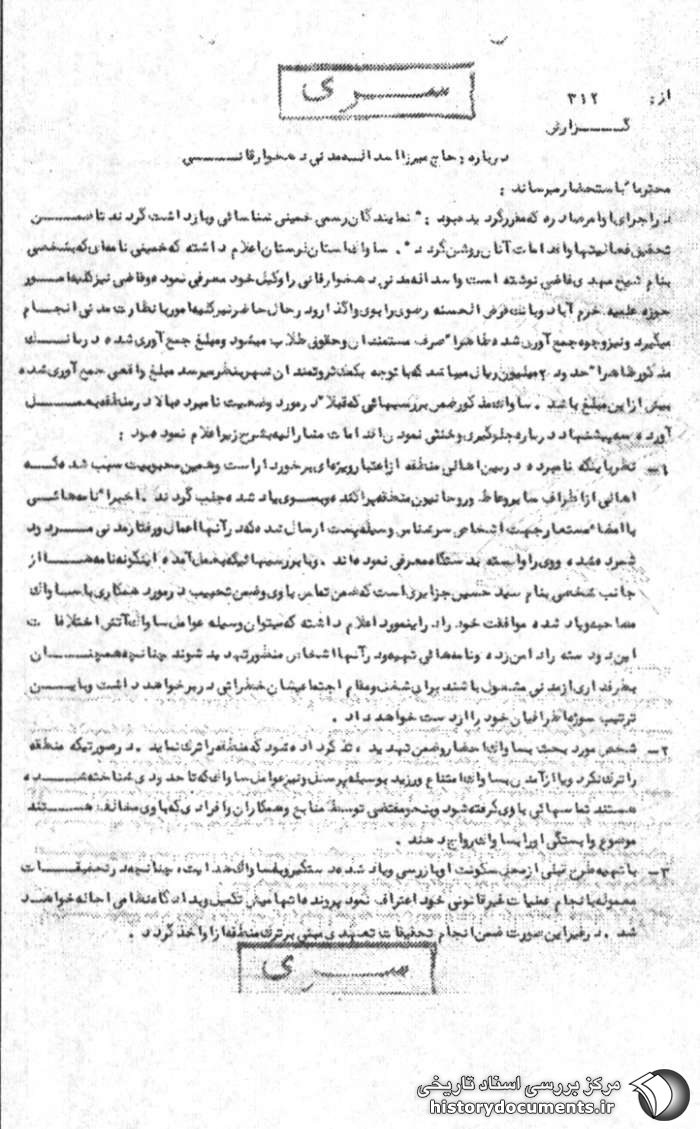 سری
از : ۳۱۲
گزارش
درباره : حاج میرزا اسدالله مدنی دهخوارقانی
محترما" باستحضار میرساند :
در اجرای اوامر صادره که مقرر گردیده بود : " نمایندگان رسمی خمینی شناسائی و بازداشت گردند تا ضمن
تحقیق فعالیتها و اقدامات آنان روشن گردد " . ساواک استان لرستان اعلام داشته که خمینی نامه‌ای که بشخصی
بنام شیخ مهدی قاضی نوشته است و اسدالله مدنی دهخوارقانی را وکیل خود معرفی نموده و قاضی نیز کلیه امور
حوزه علمیه خرم آباد و بانک قرض الحسنه رضوی را بوی واگذار و در حال حاضر نیز کلیه امور با نظارت مدنی انجام
میگیرد و نیز وجوه جمع آوری شده ظاهرا" صرف مستمندان و حقوق طلاب میشود و مبلغ جمع آوری شده در بانک
مذکور ظاهرا" حدود ۲ میلیون ریال میباشد که با توجه بکمک ثروتمندان شهر بنظر میرسد مبلغ واقعی جمع آوری شده
بیش از این مبلغ باشد . ساواک مذکور ضمن بررسیهائی که قبلا" در مورد وضعیت نامبرده بالا در منطقه بعمل
آورده سه پیشنهاد درباره جلوگیری و خنثی نمودن اقدامات مشارالیه بشرح زیر اعلام نموده بود :
۱- نظر باینکه نامبرده در بین اهالی منطقه از اعتبار ویژه‌ای برخوردار است و همین محبوبیت سبب شده که
اهالی از اطراف سایر وعاظ و روحانیون منطقه پراکنده و بسوی یاد شده جلب گردند . اخیرا" نامه‌هائی
با امضاء مستعار جهت اشخاص سرشناس وسیله پست ارسال شده که در آنها اعمال و رفتار مدنی مردود
شمرده شده و وی را وابسته بدستگاه معرفی نموده‌اند . و با بررسیهائیکه بعمل آمده اینگونه نامه‌ها از
جانب شخصی بنام سید حسین جزایری است که ضمن تماس با وی و ضمن تحبیب در مورد همکاری با ساواک
مصاحبه و یاد شده موافقت خود را در اینمورد اعلام داشته که میتوان وسیله عوامل ساواک آتش اختلافات
این دو دسته را دامن زده و نامه‌هائی تهیه و در آنها اشخاص منظور تهدید شوند چنانچه همچنان
بطرفداری از مدنی مشغول باشند برای شغل و مقام اجتماعیشان خطراتی در بر خواهد داشت و باین
ترتیب سوژه اطرافیان خود را از دست خواهد داد .
۲- شخص مورد بحث بساواک احضار و ضمن تهدید ، تذکر داده شود که منطقه را ترک نماید . در صورتیکه منطقه
را ترک نکرد و یا از آمدن بساواک امتناع ورزید بوسیله پرسنل و نیز عوامل ساواک که تا حدودی شناخته شده
هستند تماسهائی با وی گرفته شود و بنحو مقتضی توسط منابع و همکاران و افرادی که با وی مخالف هستند
موضوع وابستگی او را بساواک رواج دهند .
۳- با تهیه طرح قبلی از محل سکونت او بازرسی و یاد شده دستگیر و بساواک هدایت ، چنانچه در تحقیقات
معموله بانجام عملیات غیر قانونی خود اعتراف نمود پرونده اتهامیش تکمیل و بدادگاه نظامی احاله خواهد
شد . در غیر این صورت ضمن انجام تحقیقات تعهدی مبنی بر ترک منطقه از او اخذ گردد .
سری
مرکز بررسی اسناد تاریخی
historydocuments.ir